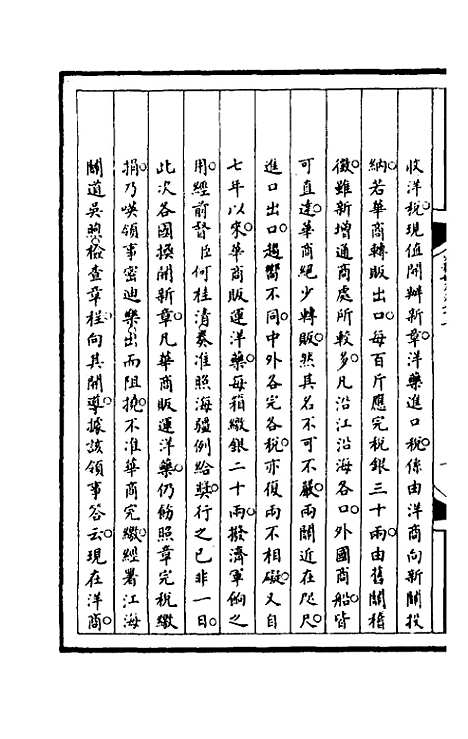 收洋稅現值開辦新章洋藥進口稅係由洋商向新關投
納若華商轉販出口每百斤應完稅銀三十兩由舊關稽
徵雖新增通商處所較多凡沿江沿海各口外國商船皆
可直達華商絕少轉販然其名不可不嚴兩關近在咫尺
進口出口趨嚮不同中外各完各稅亦復兩不相礙又自
七年以來華商販運洋藥每箱繳銀二十兩撥濟軍餉之
用經前督臣何桂清奏准照海疆例給獎行之已非一日
此次各國換開新章凡華商販運洋藥仍飭照章完稅繳
捐乃嘆領事密迪樂出而阻撓不准華商完繳經署江海
關道吳煦檢查章程向其開導據該領事答云現在洋商